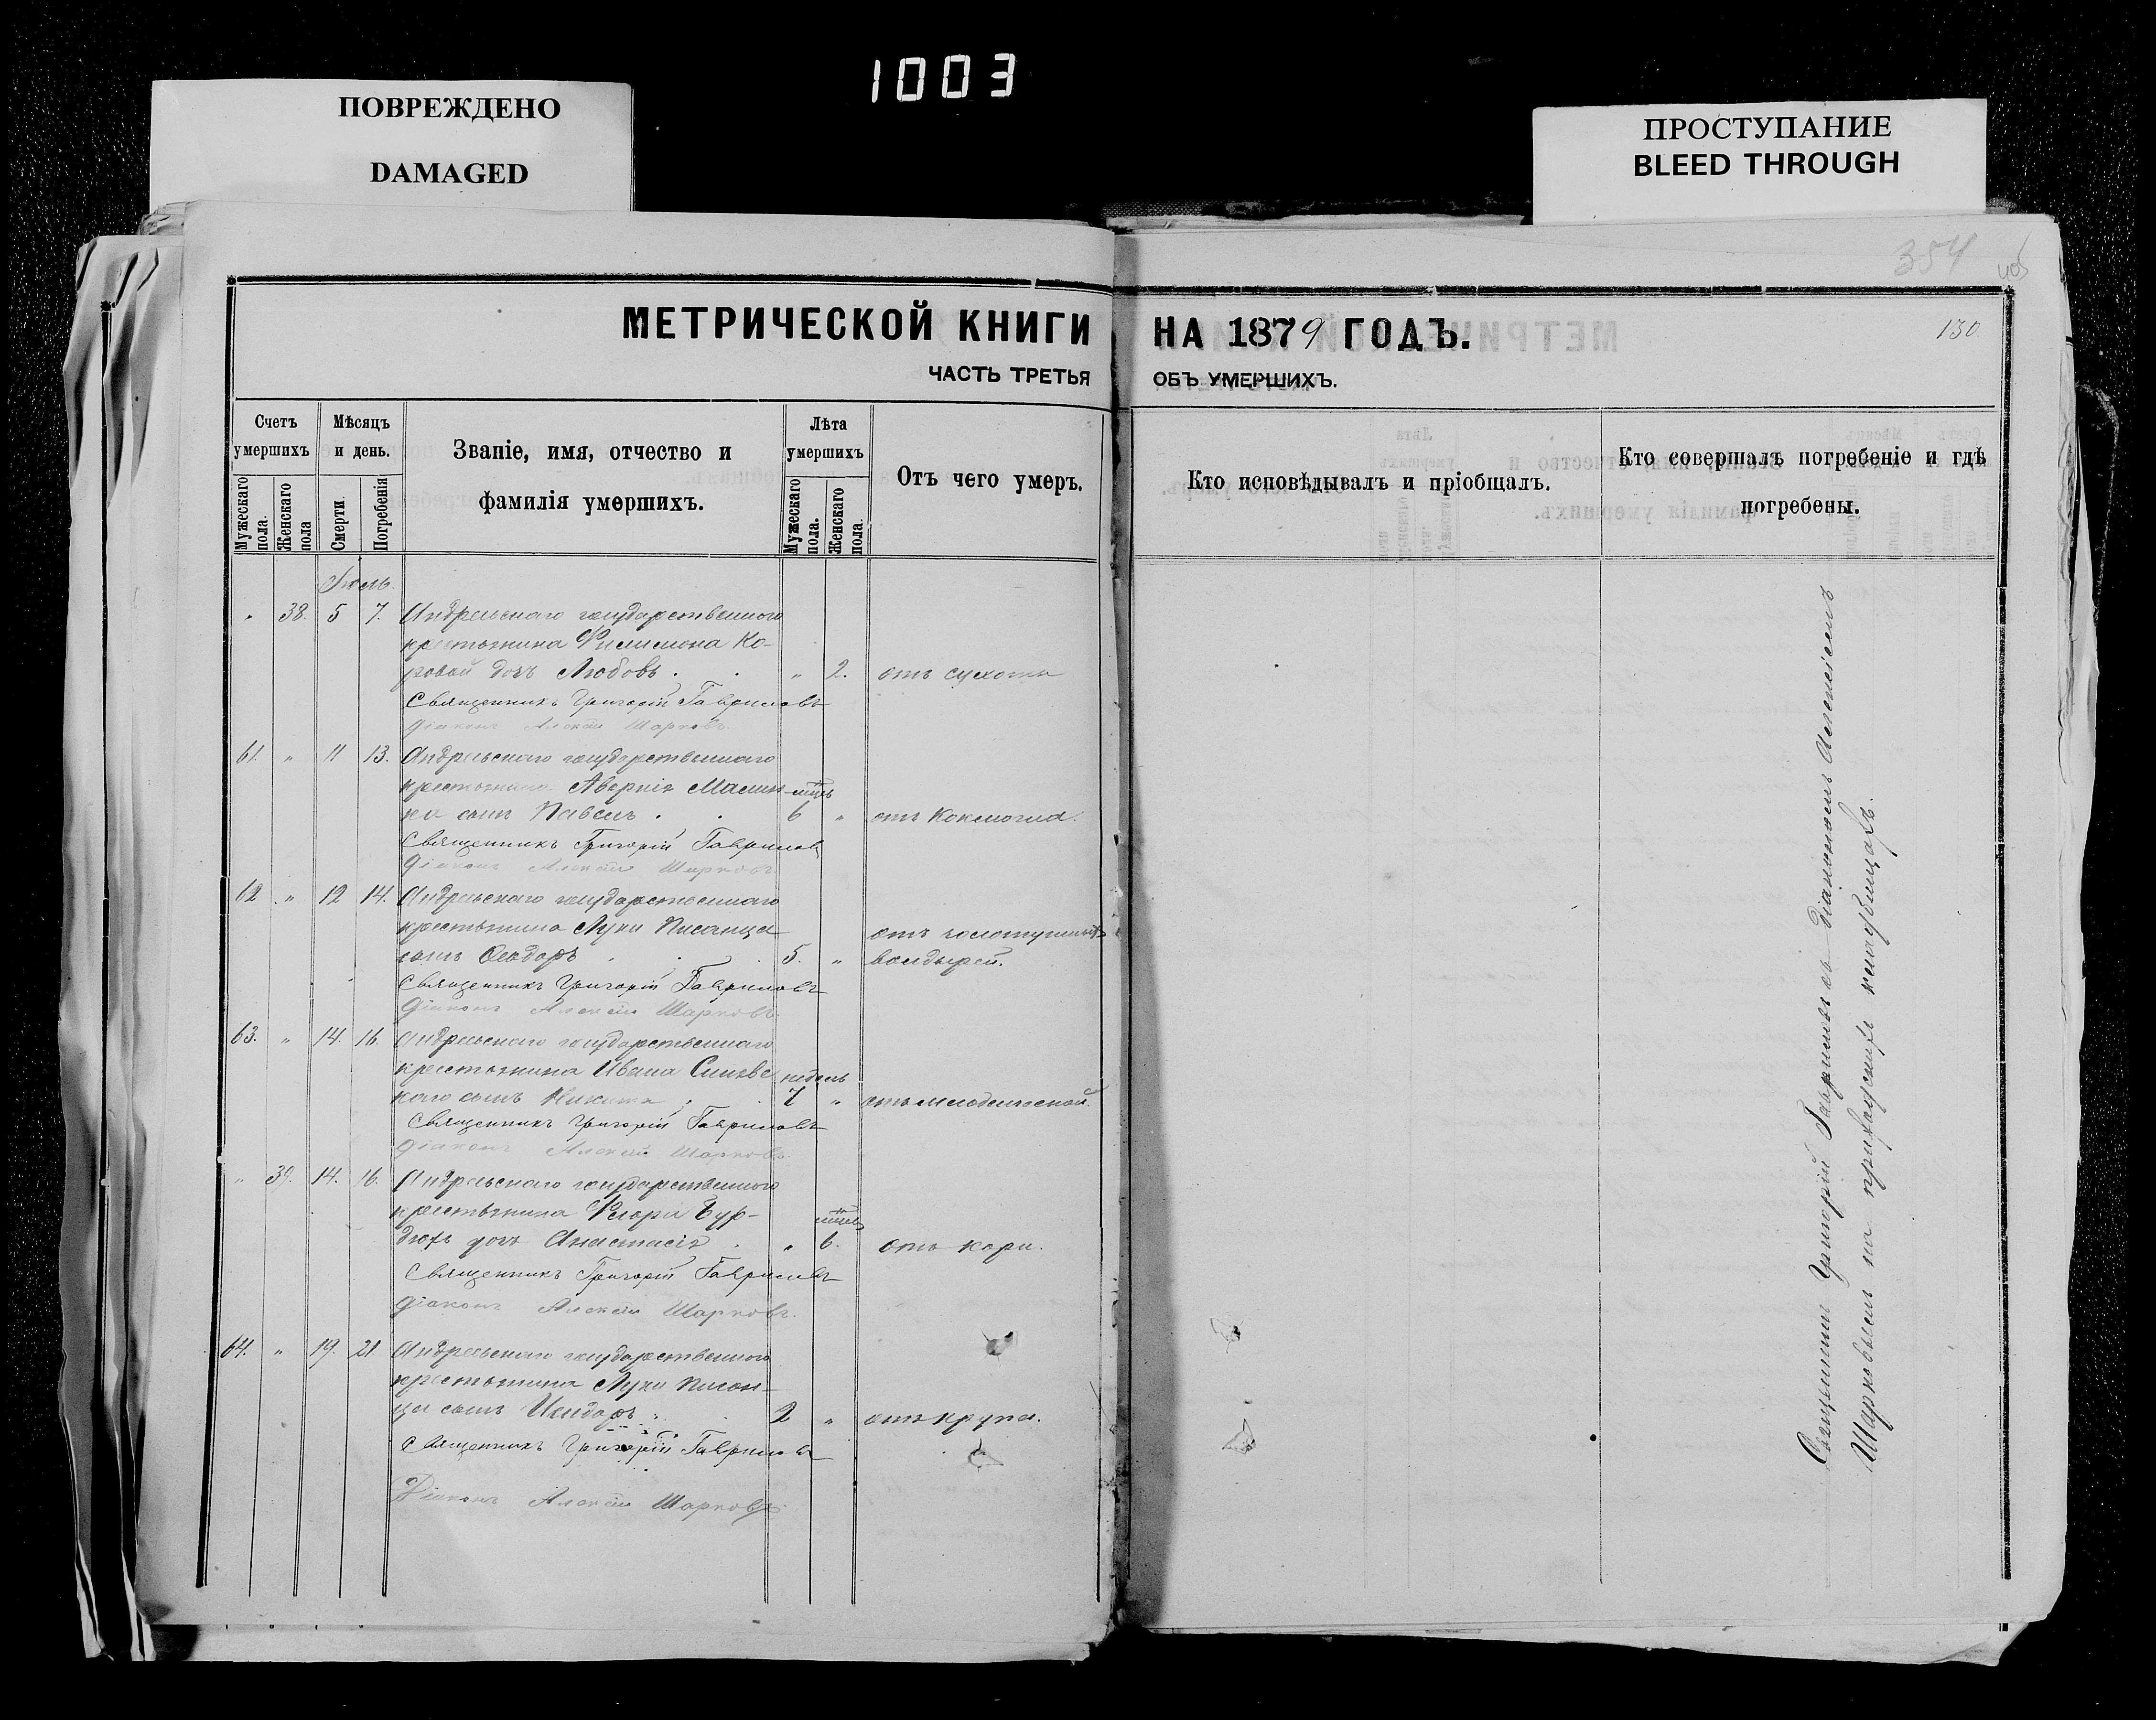 1003
ПОВРЕЖДЕНО
DAMAGED
ПРОСТУПАНИЕ
BLEED THROUGH
354
МЕТРИЧЕСКОЙ КНИГИ НА 1879 ГОДЪ.
130
ЧАСТЬ ТРЕТЬЯ ОБЪ УМЕРШИХЪ.
Счетъ умершихъ
Мужескаго пола.
Женскаго пола
Мѣсяцъ и день.
Смерти.
Погребенія
Званіе, имя, отчество и
фамилія умершихъ.
Лѣта умершихъ
Мужескаго пола.
Женскаго пола.
Отъ чего умеръ.
Кто исповѣдывалъ и пріобщалъ.
Кто совершалъ погребеніе и гдѣ
погребены.
Іюль
" 38. 5 7. Андреевскаго государственнаго
крестьянина Филимона Ко-
ровай дочь Любовь . " 2. отъ сухоты
Священникъ Григорій Гавриловъ
Діаконъ Алексій Шарковъ
61. " 11 13. Андреевскаго государственнаго
крестьянина Аверкія Малин-
ка сынъ Павелъ . мцъ 6 " отъ коклюша.
Священникъ Григорій Гавриловъ
Діаконъ Алексій Шарковъ
62 " 12 14. Андреевскаго государственнаго
крестьянина Луки Писанца
сынъ Ѳеодоръ . 5. " отъ
волдырей.
Священникъ Григорій Гавриловъ
Діаконъ Алексій Шарковъ
63. " 14. 16. Андреевскаго государственнаго
крестьянина Ивана
сынъ Никита . недель 7 " отъ младенческой.
Священникъ Григорій Гавриловъ
Діаконъ Алексій Шарковъ
" 39. 14. 16. Андреевскаго государственнаго
крестьянина
дочь Анастасія . " мцевъ 6. отъ кори.
Священникъ Григорій Гавриловъ
Діаконъ Алексій Шарковъ.
64. " 19. 21 Андреевскаго государственнаго
крестьянина Луки Писан-
ца сынъ Исидоръ . 2 " отъ крупа.
Священникъ Григорій Гавриловъ
Діаконъ Алексій Шарковъ.
Священникъ Григорій Гавриловъ съ діакономъ Алексіемъ
Шарковымъ на приходскихъ кладбищахъ.